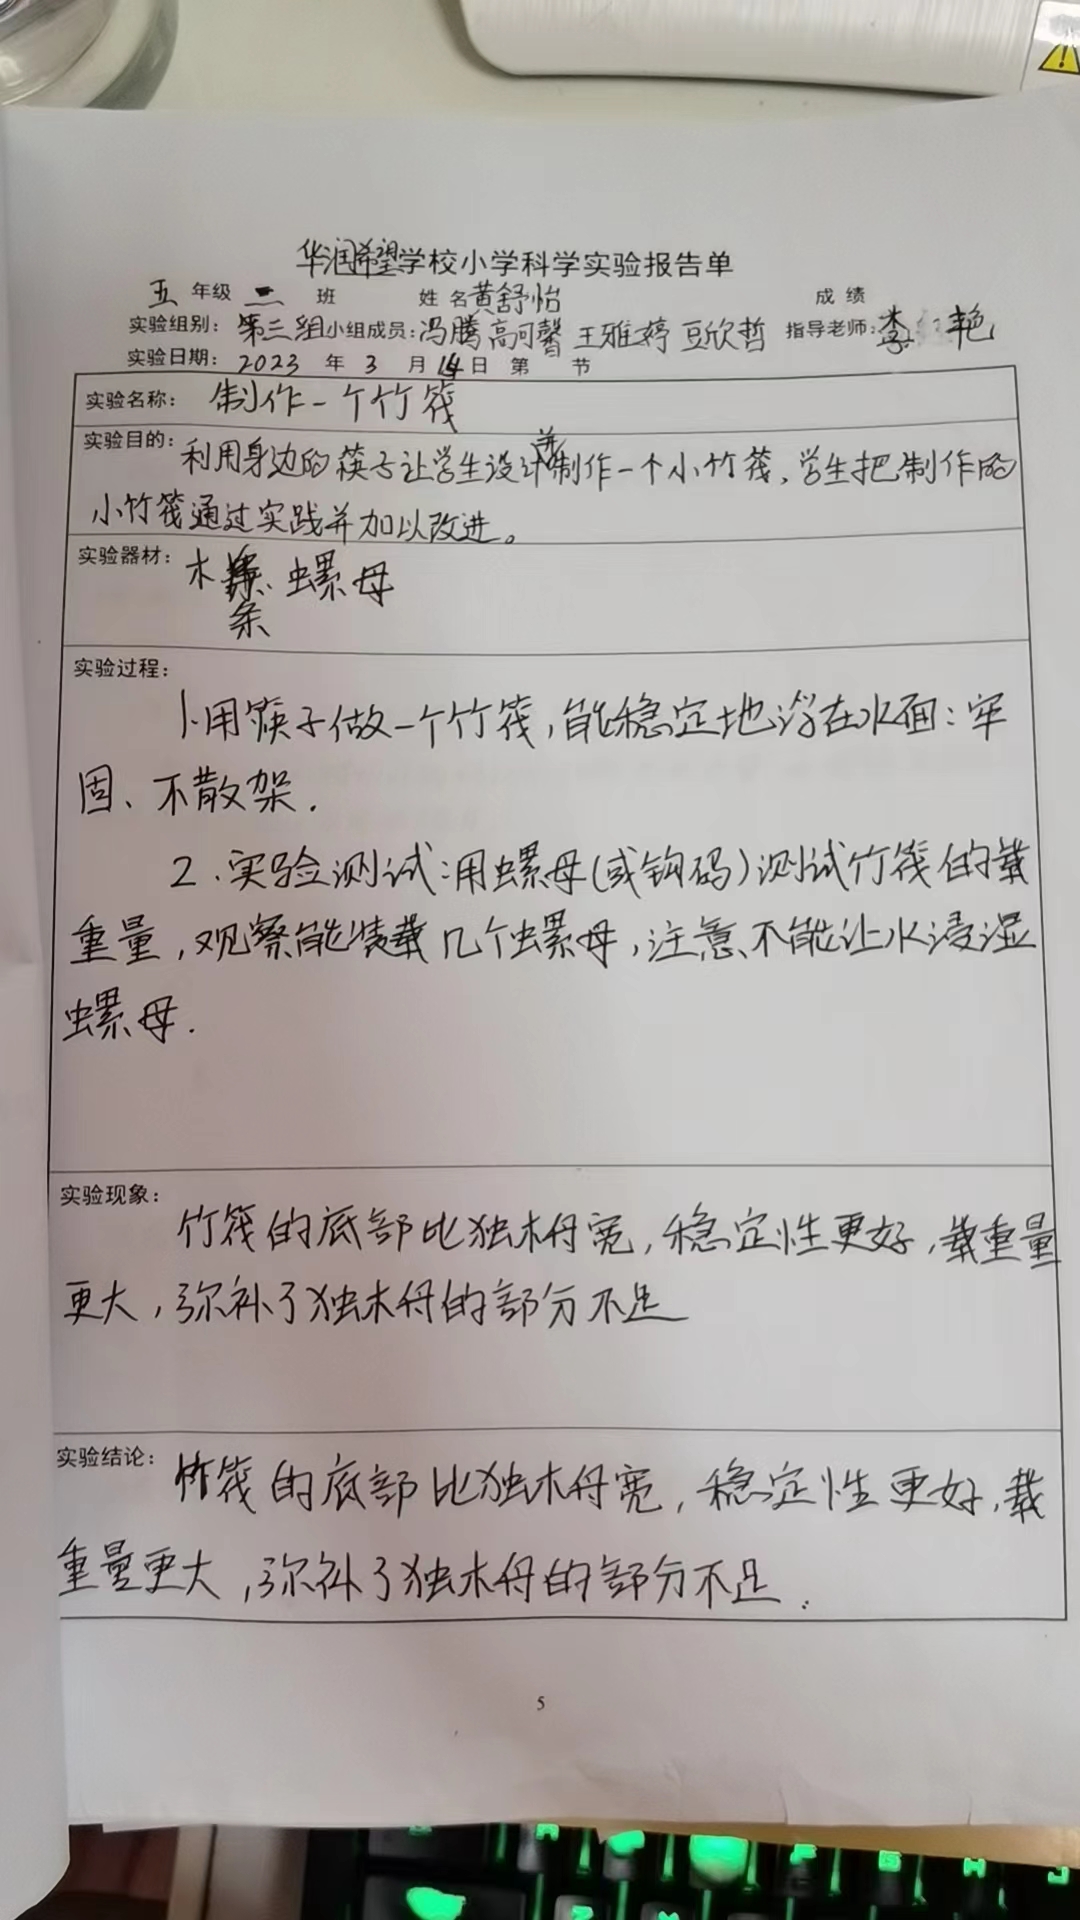 华润希望学校小学科学实验报告单
五 年级 二 班 姓 名 黄舒怡 成 绩
实验组别: 第三组 小组成员: 冯腾 高可馨 王雅婷 豆欣哲 指导老师: 李 艳
实验日期: 2023 年 3 月 14 日 第 节
实验名称: 制作一个竹筏
实验目的: 利用身边的筷子让学生设计并制作一个小竹筏，学生把制作的
小竹筏通过实践并加以改进。
实验器材: 木条、螺母
实验过程:
1.用筷子做一个竹筏，能稳定地浮在水面：牢
固、不散架.
2.实验测试：用螺母(或钩码)测试竹筏的载
重量，观察能装载几个螺母，注意不能让水浸湿
螺母.
实验现象:
竹筏的底部比独木舟宽，稳定性更好，载重量
更大，弥补了独木舟的部分不足
实验结论: 竹筏的底部比独木舟宽，稳定性更好，载
重量更大，弥补了独木舟的部分不足.
5